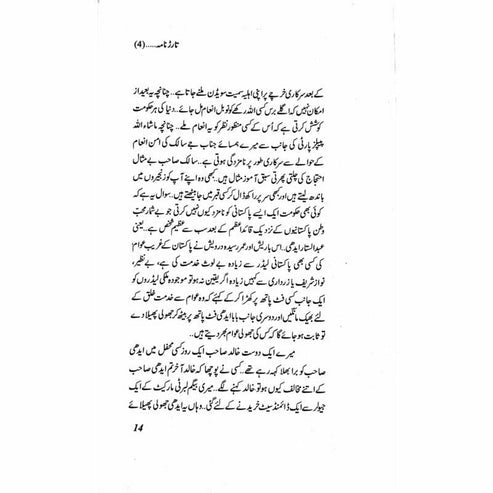 تارڑ نامہ.....(4)
کے بعد سرکاری خرچے پر اپنی اہلیہ سمیت سویڈن ملنے جاتا ہے.. چنانچہ یہ بعید از
امکان نہیں کہ اگلے برس کسی اللہ رکھے کو نوبل انعام مل جائے.. دنیا کی ہر حکومت
کوشش کرتی ہے کہ اُس کے کسی منظور نظر کو یہ انعام ملے.. چنانچہ ماشاء اللہ
پیپلز پارٹی کی جانب سے میرے ہمسائے جناب جے سالک کی امن انعام
کے حوالے سے سرکاری طور پر نامزدگی ہوتی ہے.. سالک صاحب بے مثال
احتجاج کی چلتی پھرتی سبق آموز مثال ہیں.. کبھی وہ اپنے آپ کو زنجیروں میں
باندھ لیتے ہیں اور کبھی سر پر راکھ ڈال کر کسی قبر میں جا بیٹھتے ہیں.. سوال یہ ہے کہ
کوئی بھی حکومت ایک ایسے پاکستانی کو نامزد کیوں نہیں کرتی جو بے شمار محبّ
وطن پاکستانیوں کے نزدیک قائداعظم کے بعد سب سے عظیم شخص ہے.. یعنی
عبدالستار ایدھی.. اس باریش اور عمر رسیدہ درویش نے پاکستان کے غریب عوام
کی کسی بھی پاکستانی لیڈر سے زیادہ بے لوث خدمت کی ہے، بے نظیر،
نواز شریف یا زرداری سے کہیں زیادہ اگر یقین نہ ہو تو موجودہ ملکی لیڈروں کو
ایک جانب کسی فٹ پاتھ پر کھڑا کر کے کہئے کہ وہ عوام سے خدمت خلق کے
لئے بھیک مانگیں اور دوسری جانب بابا ایدھی فٹ پاتھ پر بیٹھ کر جھولی پھیلا دے
تو ثابت ہو جائے گا کہ کس کی جھولی عوام بھر دیتے ہیں..
میرے ایک دوست خالد صاحب ایک روز کسی محفل میں ایدھی
صاحب کو برا بھلا کہہ رہے تھے.. کسی نے پوچھا کہ خالد آخر تم ایدھی صاحب
کے اتنے مخالف کیوں ہو تو خالد کہنے لگے.. میری بیگم لبرٹی مارکیٹ کے ایک
جیولر سے ایک ڈائمنڈ سیٹ خریدنے کے لئے گئی.. وہاں یہ ایدھی جھولی پھیلائے
14